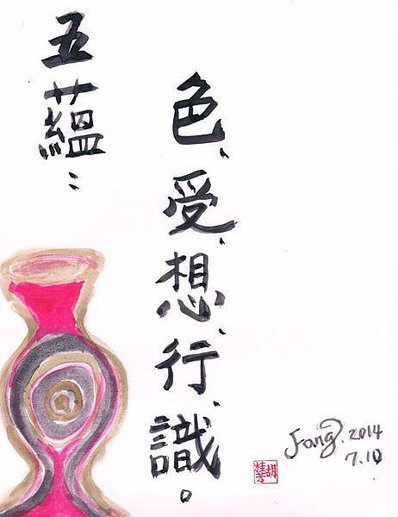 五蘊：
色、受、想、行、識。
Fang. 2014
7.10